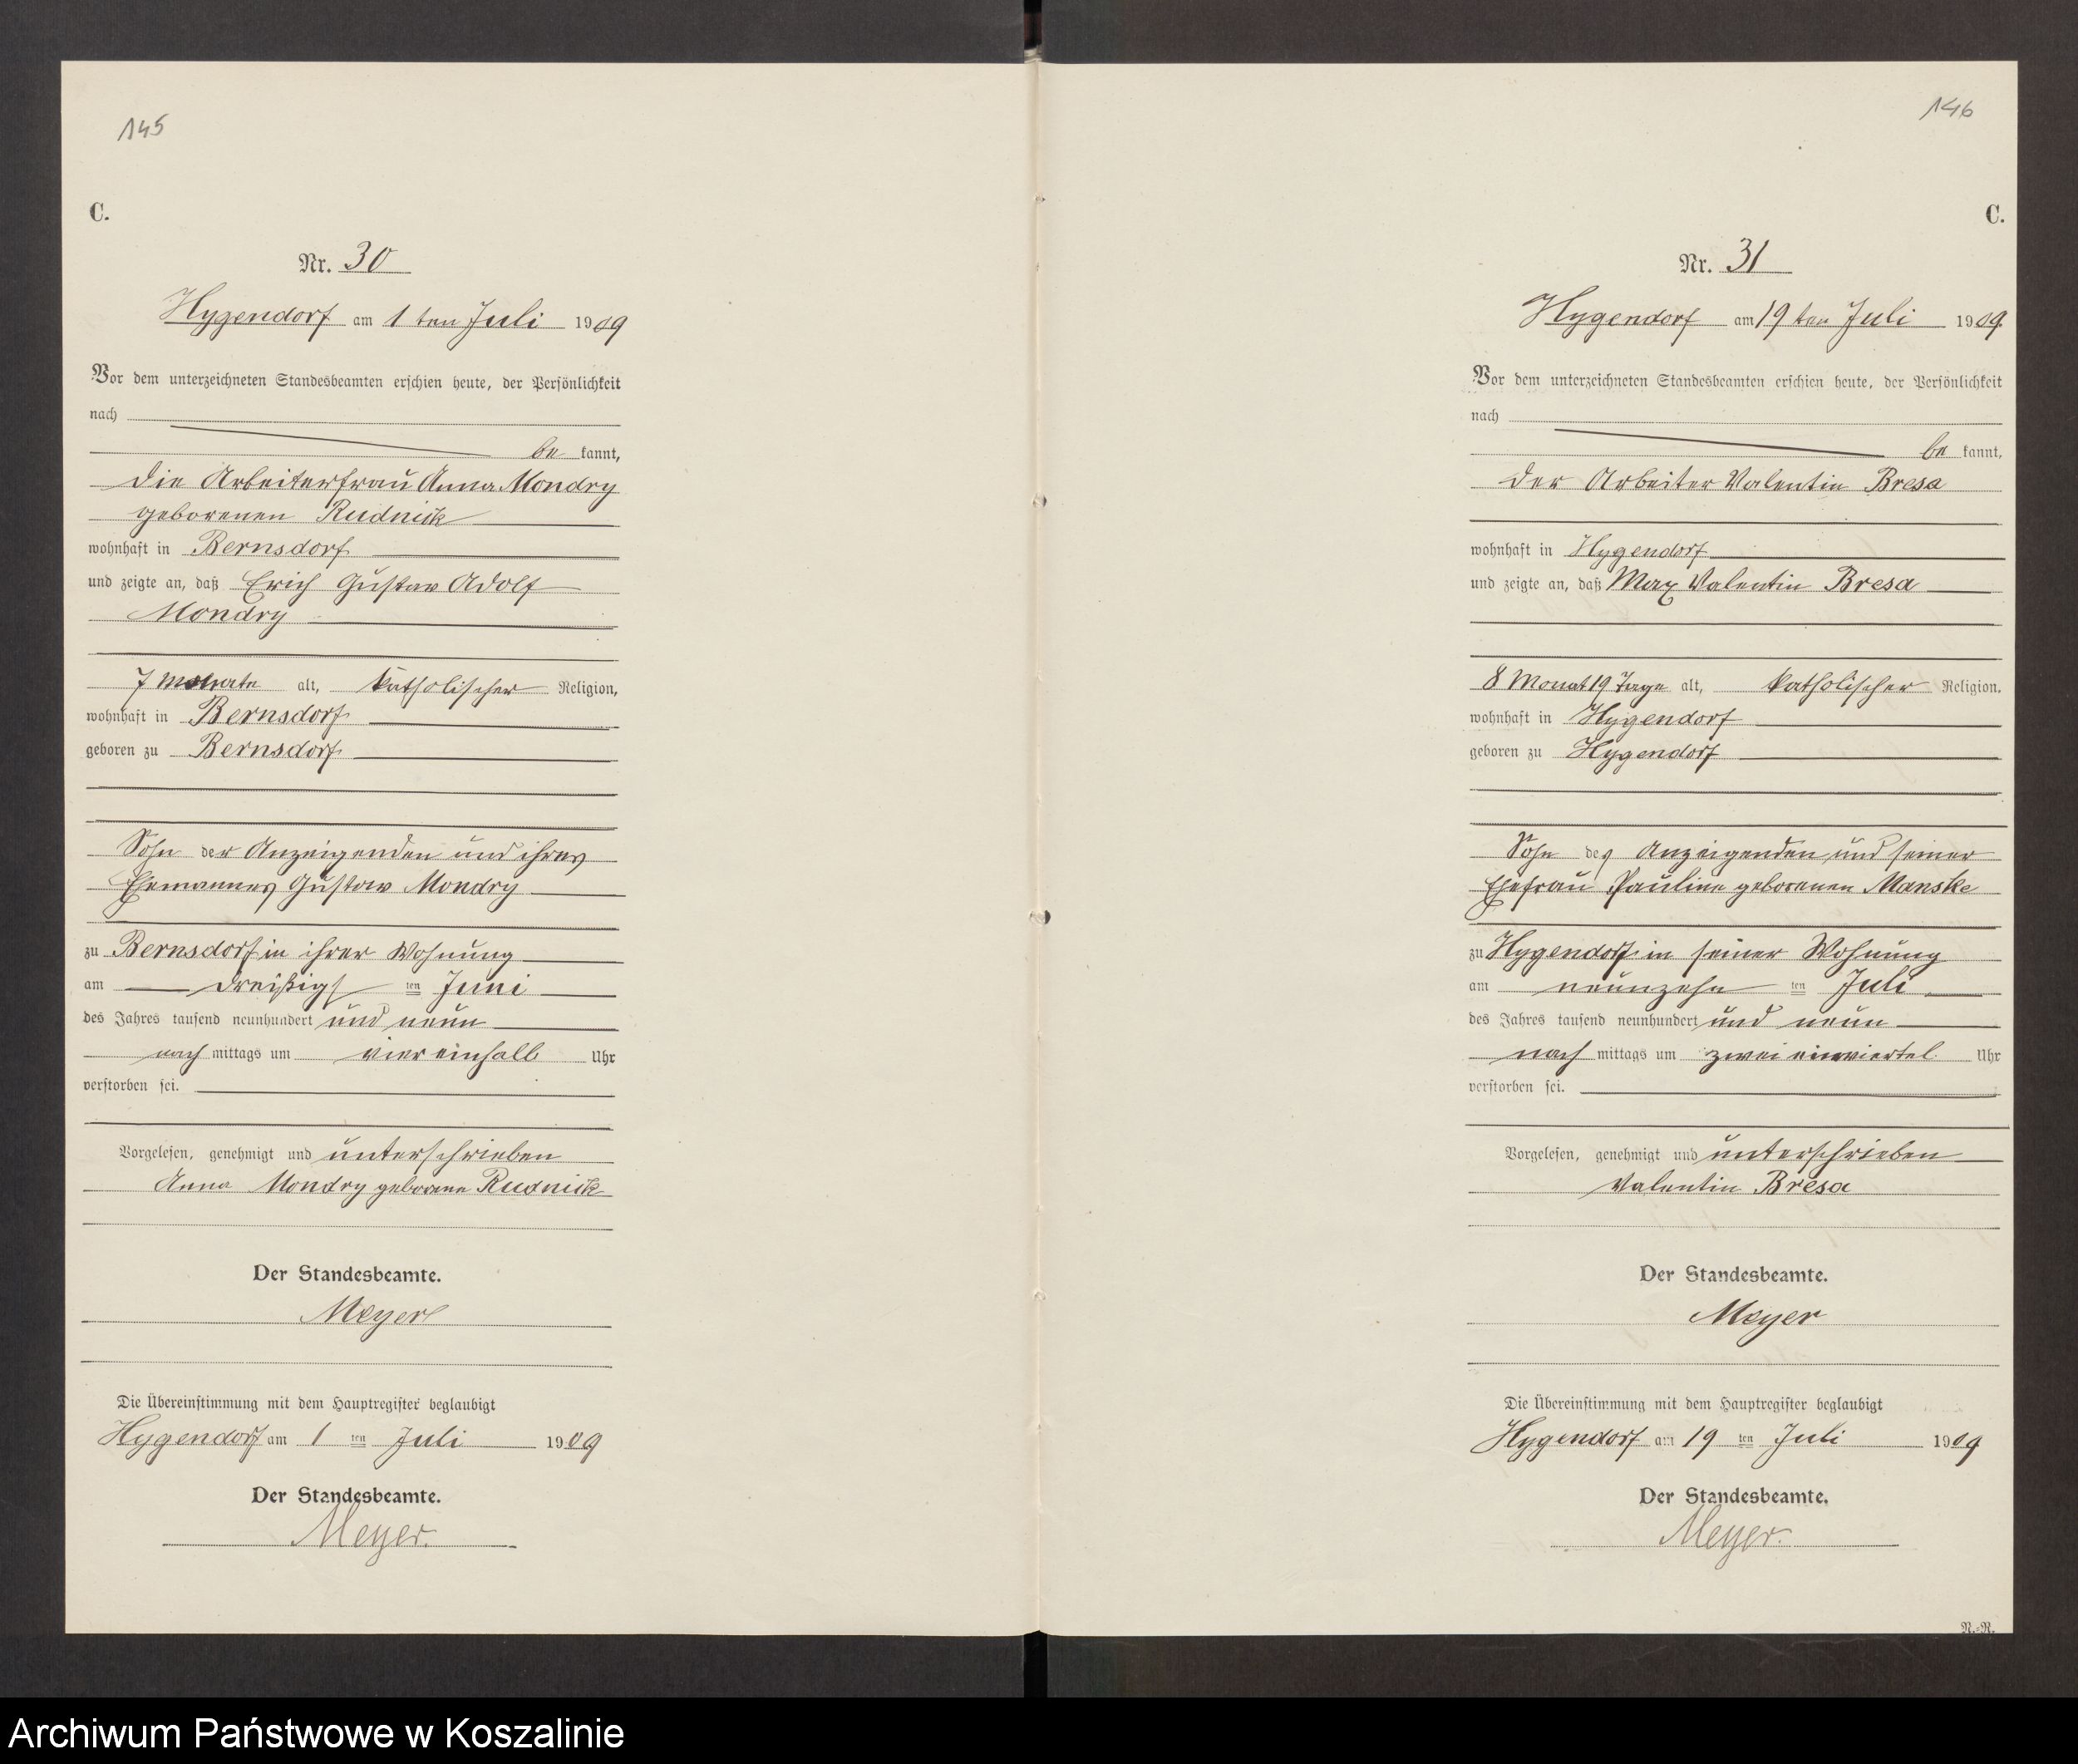 145
C.
Nr. 30
Hygendorf am 1ten Juli 1909
Vor dem unterzeichneten Standesbeamten erschien heute, der Persönlichkeit
nach
be kannt,
die Arbeiterfrau Anna Mondry
geborenen Rudnick
wohnhaft in Bernsdorf
und zeigte an, daß Erich Gustav Adolf
Mondry
7 Monate alt, katholischer Religion,
wohnhaft in Bernsdorf
geboren zu Bernsdorf
Sohn der Anzeigenden und ihres
Ehemannes Gustav Mondry
zu Bernsdorf in ihrer Wohnung
am dreißigs ten Juni
des Jahres tausend neunhundert und neun
nach mittags um viereinhalb Uhr
verstorben sei.
Vorgelesen, genehmigt und unterschrieben
Anna Mondry geborene Rudnick
Der Standesbeamte.
Meyer
Die Übereinstimmung mit dem Hauptregister beglaubigt
Hygendorf am 1 ten Juli 1909
Der Standesbeamte.
Meyer.
146
C.
Nr. 31
Hygendorf am 19ten Juli 1909.
Vor dem unterzeichneten Standesbeamten erschien heute, der Persönlichkeit
nach
be kannt,
der Arbeiter Valentin Bresa
wohnhaft in Hygendorf
und zeigte an, daß Max Valentin Bresa
8 Monat 19 Tage alt, katholischer Religion,
wohnhaft in Hygendorf
geboren zu Hygendorf
Sohn des Anzeigenden und seiner
Ehefrau Pauline geborenen Manske
zu Hygendorf in seiner Wohnung
am neunzehn ten Juli
des Jahres tausend neunhundert und neun
nach mittags um zwei einviertel Uhr
verstorben sei.
Vorgelesen, genehmigt und unterschrieben
Valentin Bresa
Der Standesbeamte.
Meyer
Die Übereinstimmung mit dem Hauptregister beglaubigt
Hygendorf am 19 ten Juli 1909
Der Standesbeamte.
Meyer.
N.-R.
Archiwum Państwowe w Koszalinie